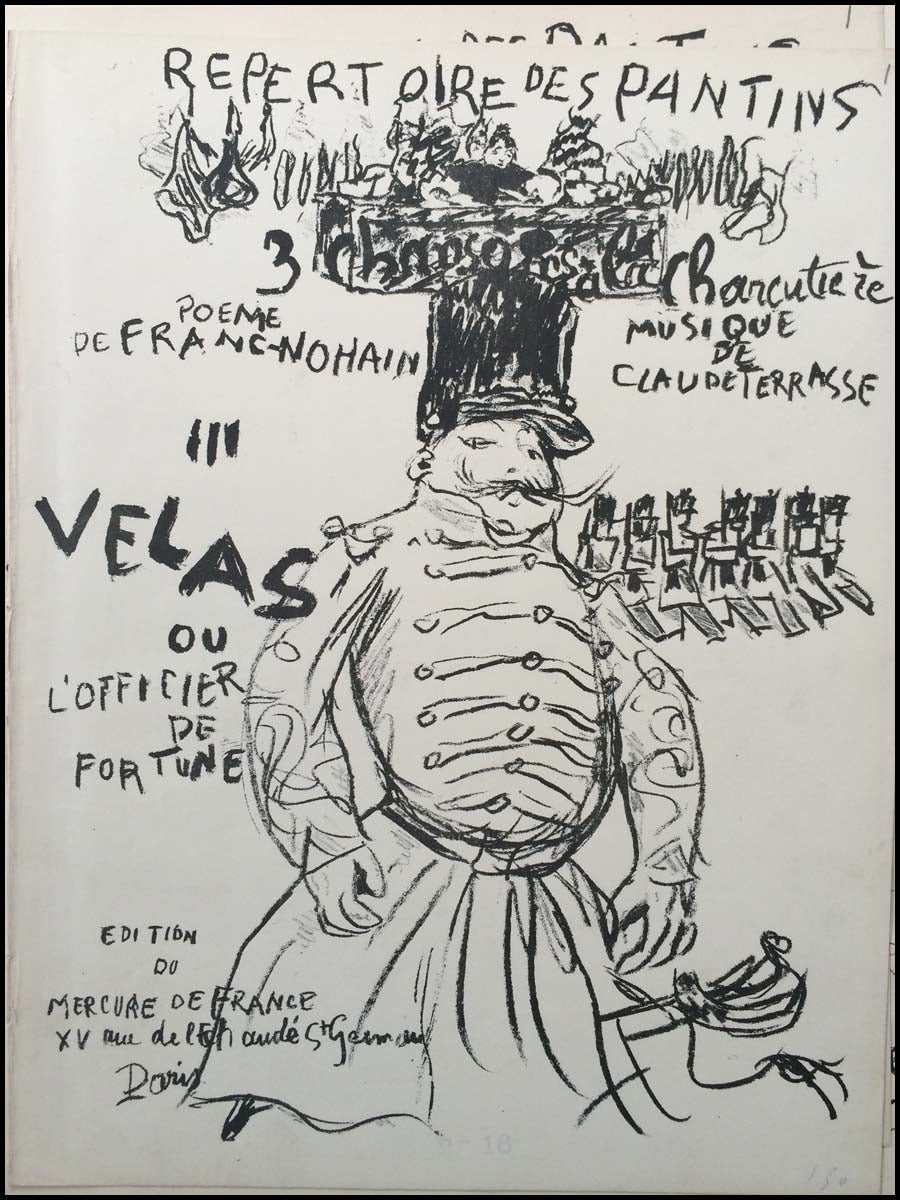 REPERTOIRE DES PANTINS
3 Chansons à la Charcutière
POEME
DE FRANC-NOHAIN
MUSIQUE
DE
CLAUDE TERRASSE
III
VELAS
OU
L'OFFICIER
DE
FORTUNE
EDITION
DU
MERCURE DE FRANCE
XV rue de l'Echaudé St Germain
Paris
16
150